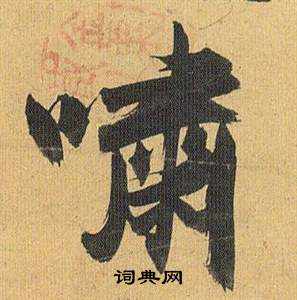 嘯
词典网